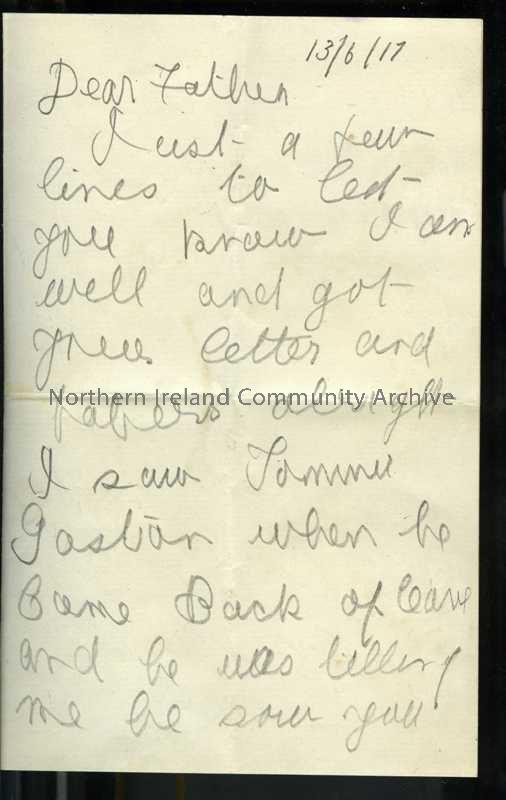 13/6/17
Dear Father
Just a few
lines to let
you know I am
well and got
your letter and
papers alright
Northern Ireland Community Archive
I saw Tommie
Gaston when he
Came Back of leave
and he was telling
me he sow you